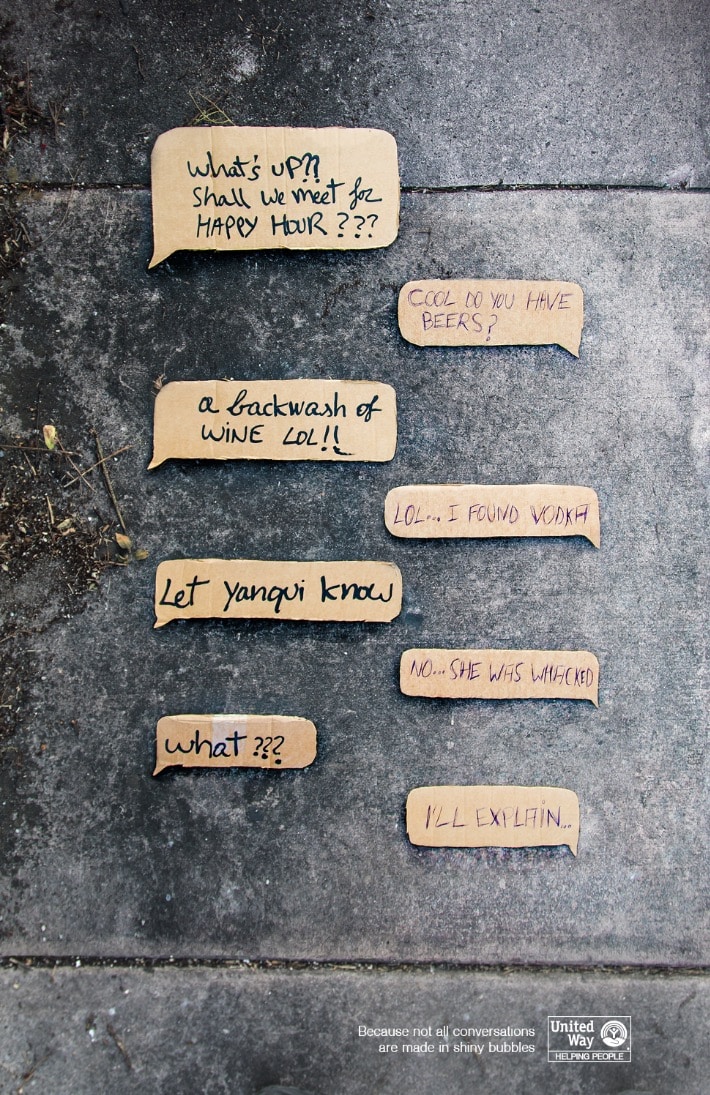 what's UP??
Shall we meet for
HAPPY HOUR ???
COOL DO YOU HAVE
BEERS?
a backwash of
WiNE LOL!!
LOL... I FOUND VODKA
Let yanqui know
NO... SHE WAS WHACKED
what ???
I'LL EXPLAIN...
Because not all conversations
are made in shiny bubbles
United
Way
HELPING PEOPLE